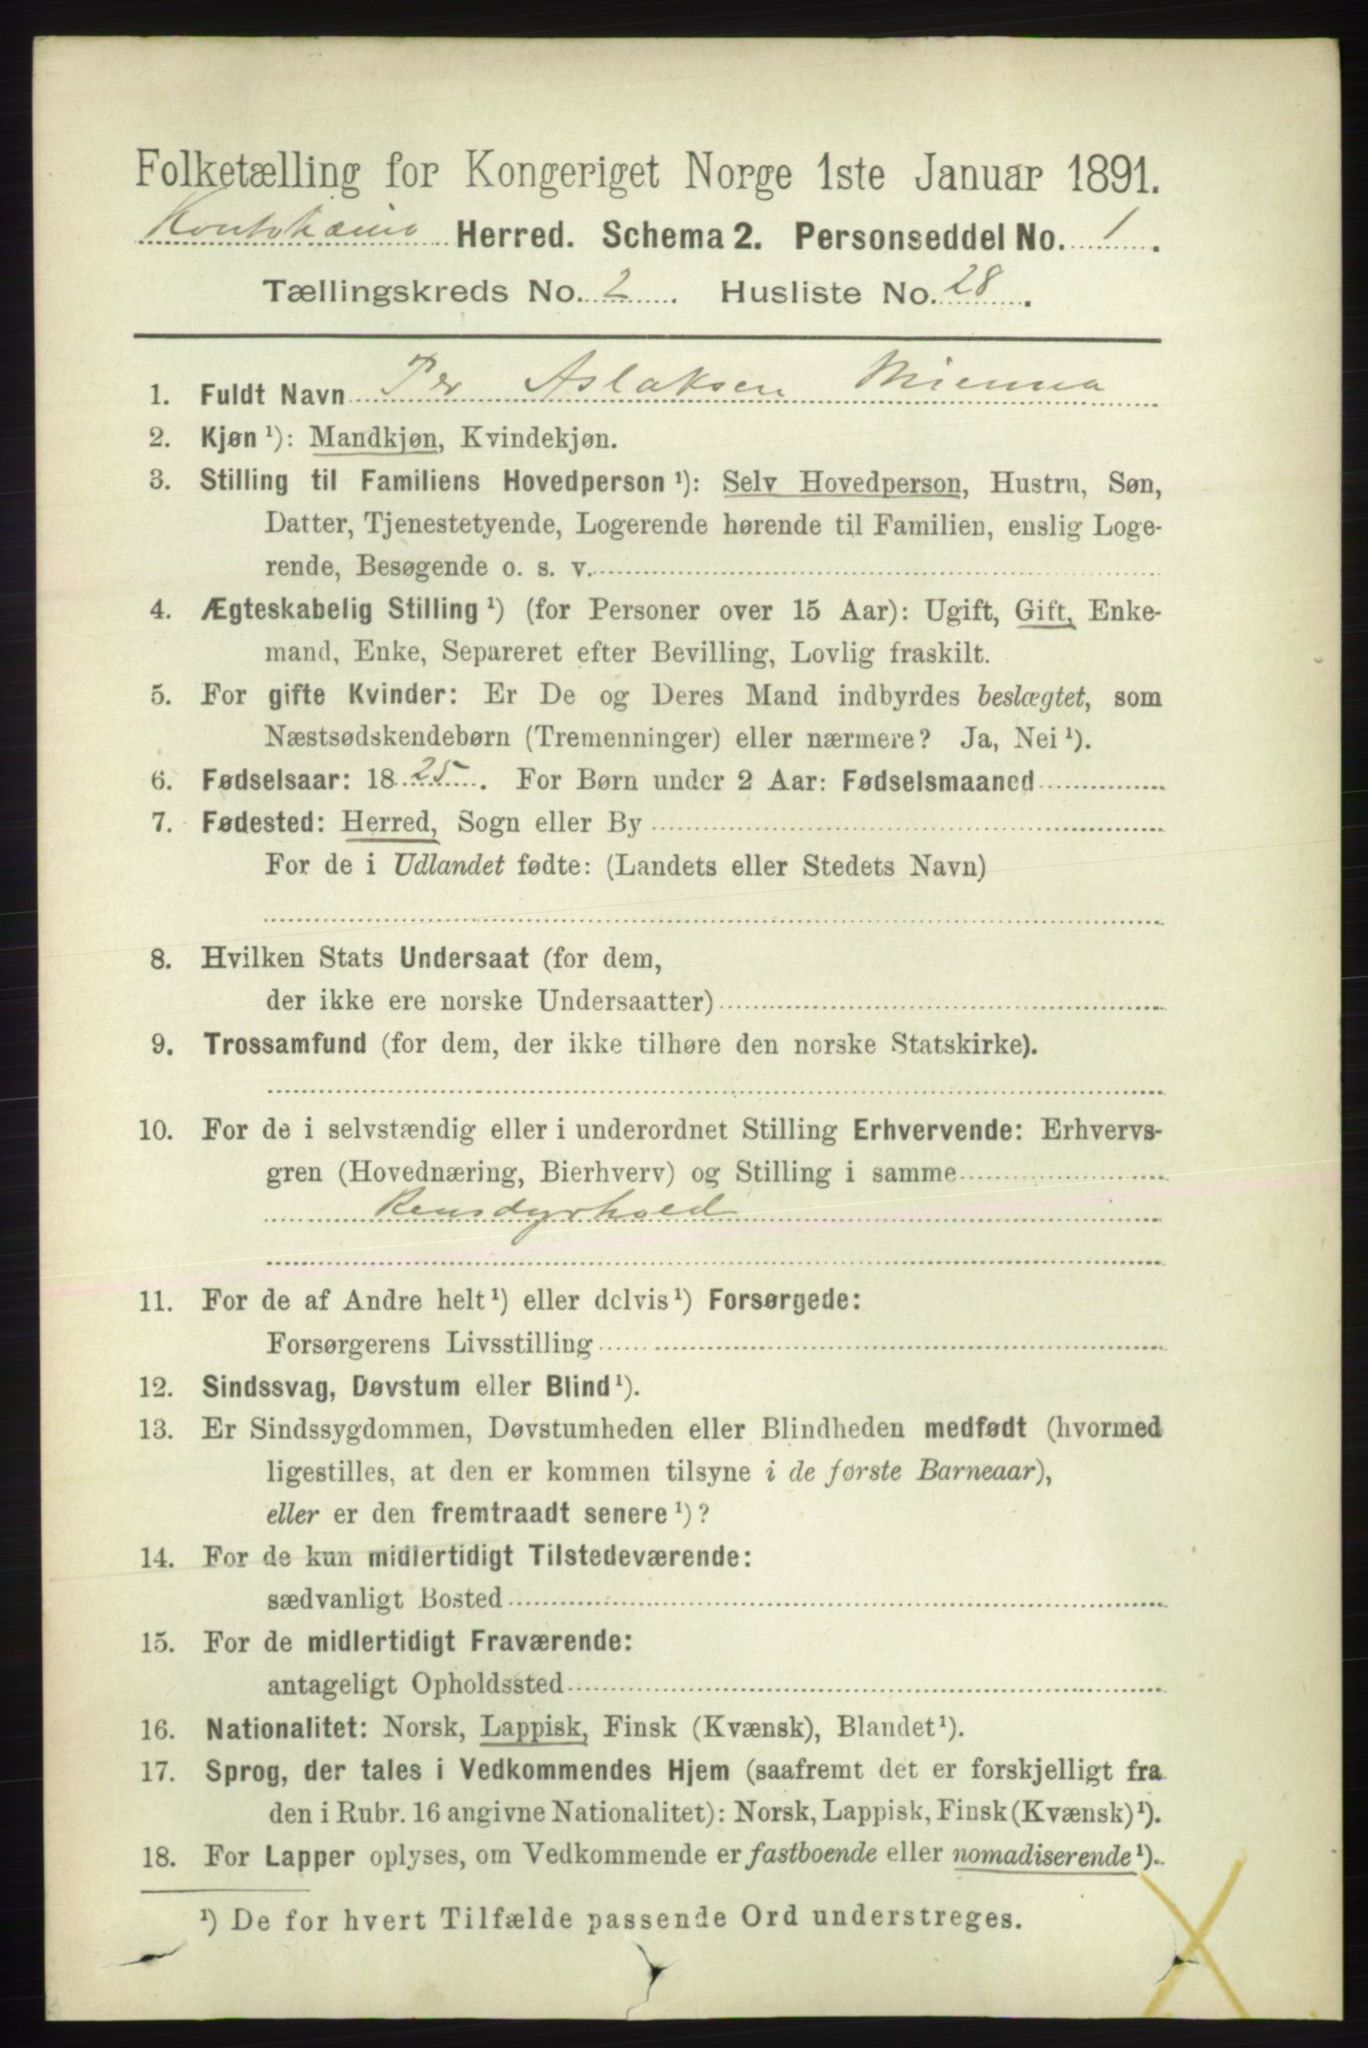 Folketælling for Kongeriget Norge 1ste Januar 1891.
Koutokæino Herred. Schema 2. Personseddel No. 1.
Tællingskreds No. 2. Husliste No. 28.
1. Fuldt Navn Per Aslaksen Mienna
2. Kjøn ¹): Mandkjøn, Kvindekjøn.
3. Stilling til Familiens Hovedperson ¹): Selv Hovedperson, Hustru, Søn,
Datter, Tjenestetyende, Logerende hørende til Familien, enslig Loge-
rende, Besøgende o. s. v.
4. Ægteskabelig Stilling ¹) (for Personer over 15 Aar): Ugift, Gift, Enke-
mand, Enke, Separeret efter Bevilling, Lovlig fraskilt.
5. For gifte Kvinder: Er De og Deres Mand indbyrdes beslægtet, som
Næstsødskendebørn (Tremenninger) eller nærmere? Ja, Nei ¹).
6. Fødselsaar: 1825. For Børn under 2 Aar: Fødselsmaaned
7. Fødested: Herred, Sogn eller By
For de i Udlandet fødte: (Landets eller Stedets Navn)
8. Hvilken Stats Undersaat (for dem,
der ikke ere norske Undersaatter)
9. Trossamfund (for dem, der ikke tilhøre den norske Statskirke).
10. For de i selvstændig eller i underordnet Stilling Erhvervende: Erhvervs-
gren (Hovednæring, Bierhverv) og Stilling i samme
Rensdyrhold
11. For de af Andre helt ¹) eller delvis ¹) Forsørgede:
Forsørgerens Livsstilling
12. Sindssvag, Døvstum eller Blind ¹).
13. Er Sindssygdommen, Døvstumheden eller Blindheden medfødt (hvormed
ligestilles, at den er kommen tilsyne i de første Barneaar),
eller er den fremtraadt senere ¹)?
14. For de kun midlertidigt Tilstedeværende:
sædvanligt Bosted
15. For de midlertidigt Fraværende:
antageligt Opholdssted
16. Nationalitet: Norsk, Lappisk, Finsk (Kvænsk), Blandet ¹).
17. Sprog, der tales i Vedkommendes Hjem (saafremt det er forskjelligt fra
den i Rubr. 16 angivne Nationalitet): Norsk, Lappisk, Finsk (Kvænsk) ¹).
18. For Lapper oplyses, om Vedkommende er fastboende eller nomadiserende ¹).
¹) De for hvert Tilfælde passende Ord understreges.